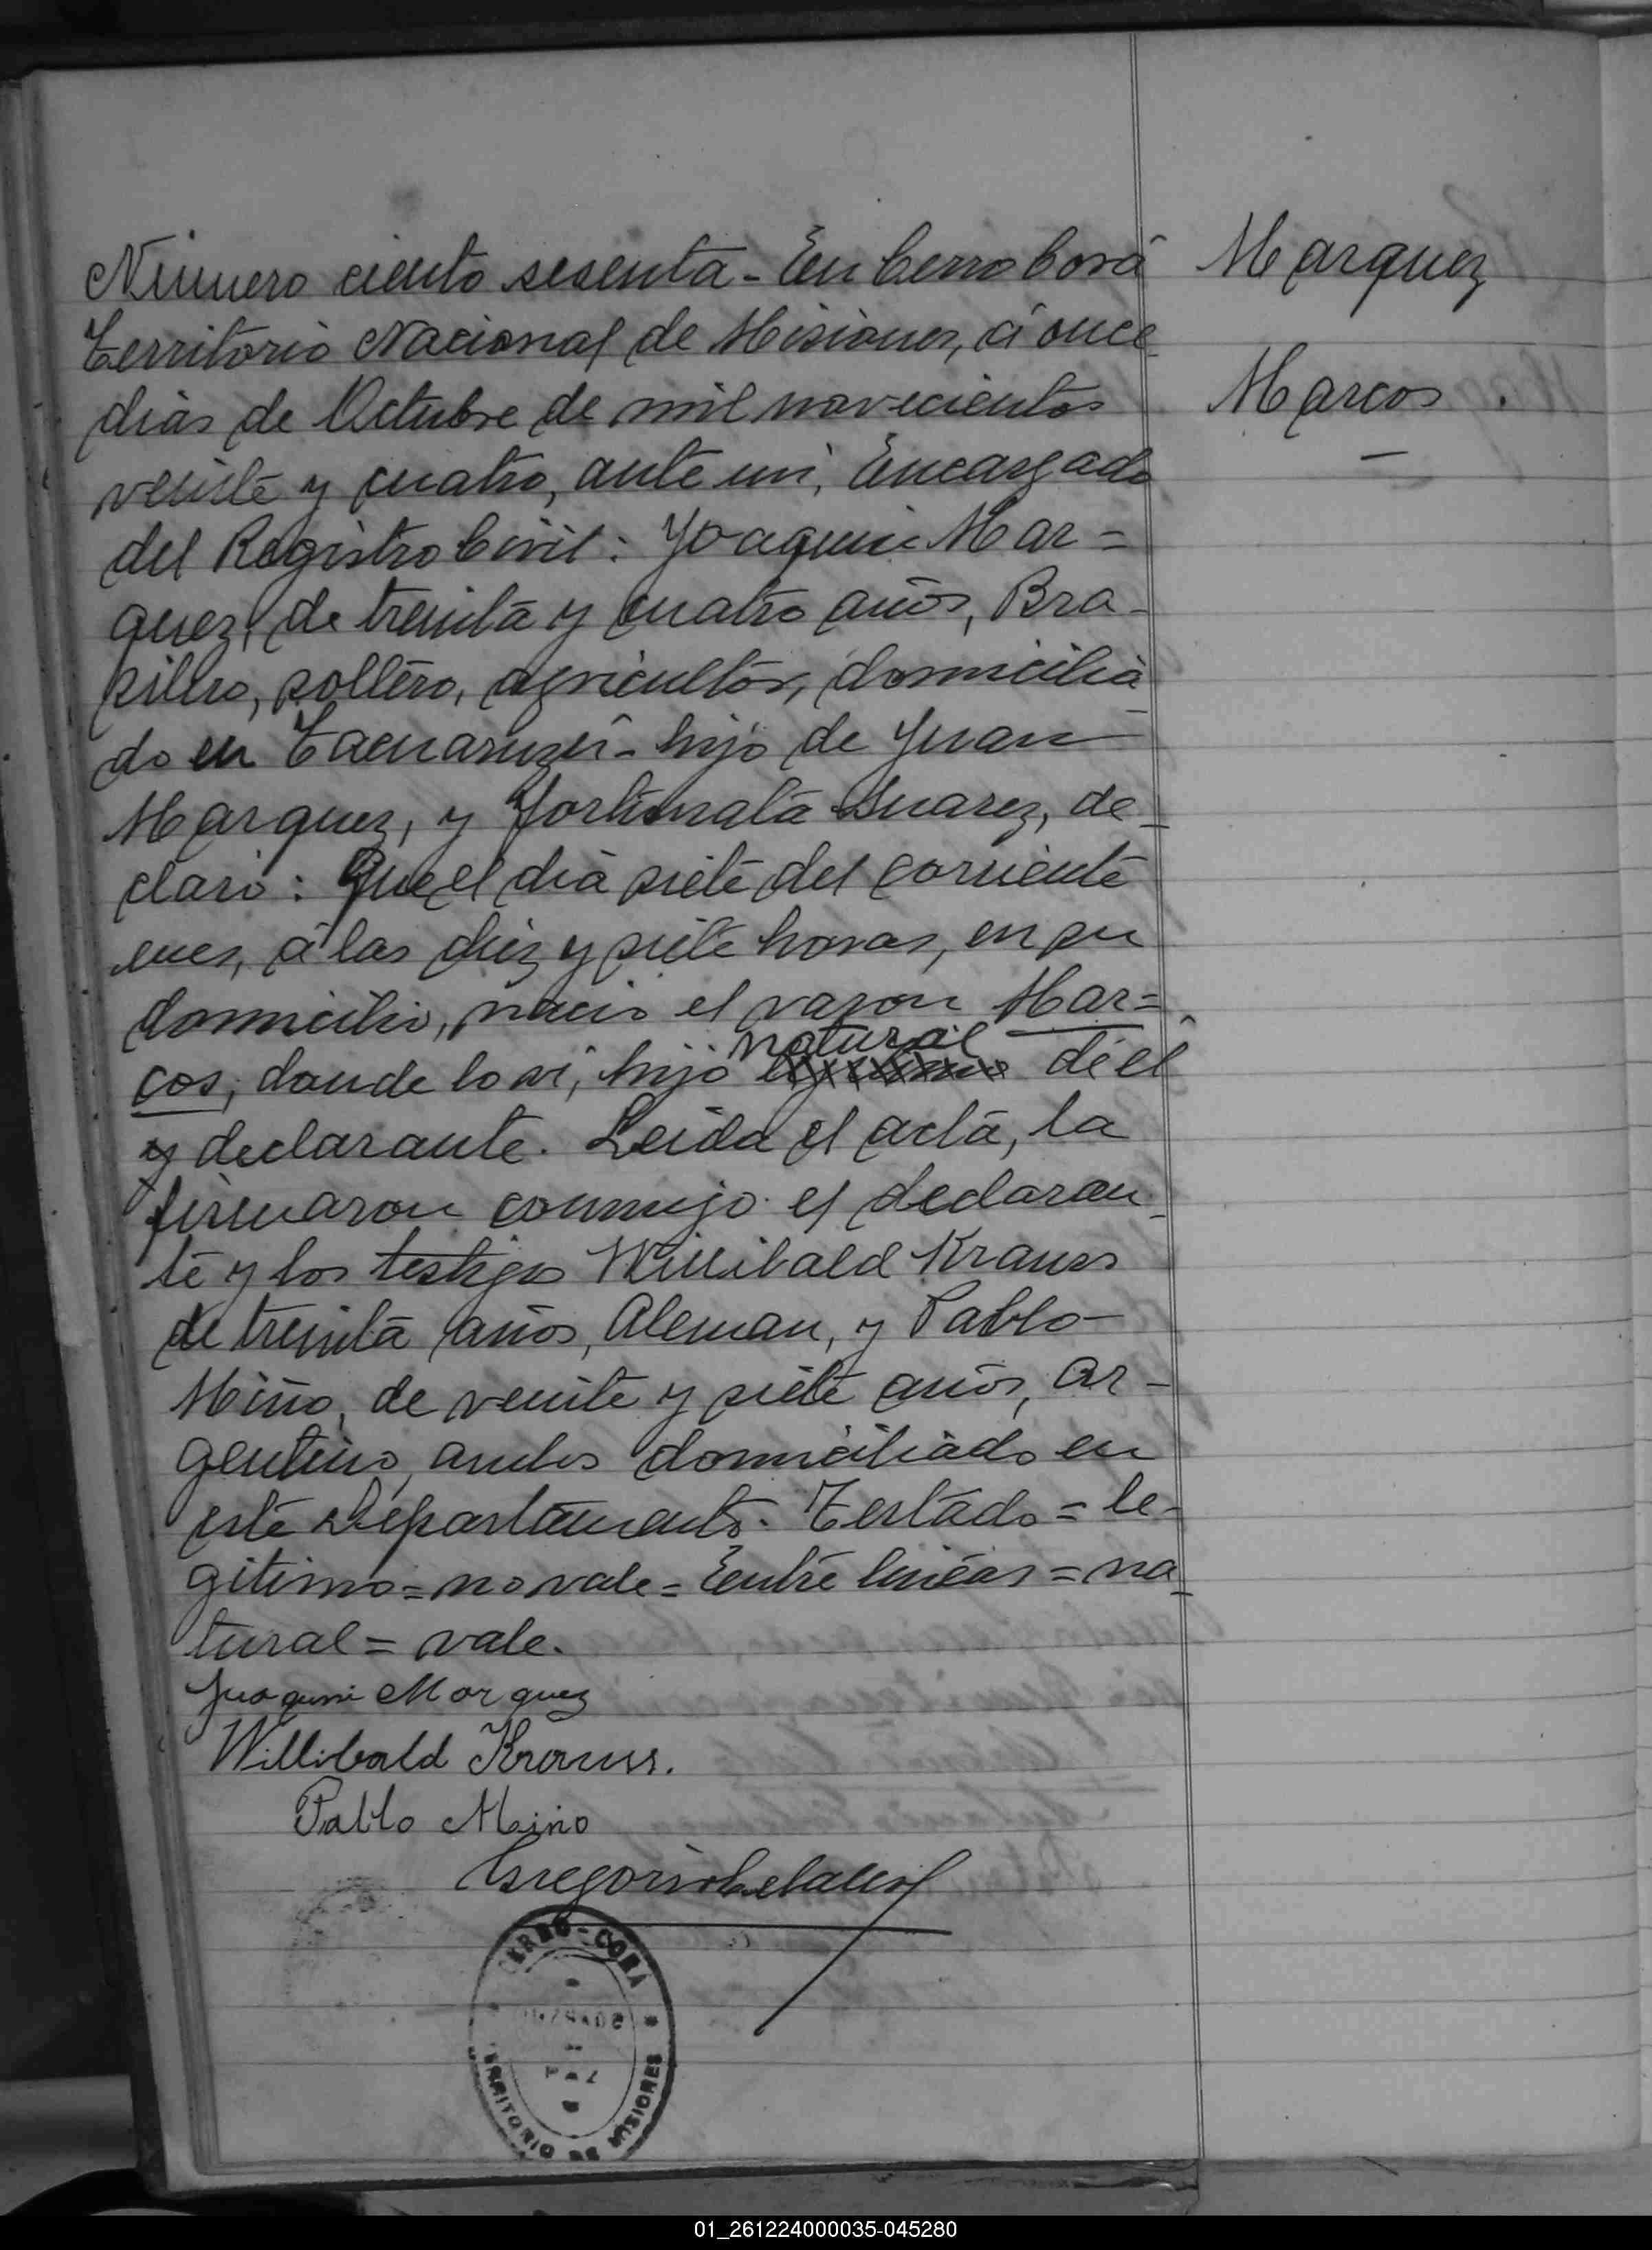 Marquez
Marcos
Número ciento sesenta - En Cerro Corá
Territorio Nacional de Misiones, á once
dias de Octubre de mil novecientos
veinte y cuatro, ante mi, Encargado
del Registro Civil: Joaquin Mar=
quez, de treinta y cuatro años, Bra-
silero, soltero, agricultor, domicilia-
do en Tacuaruzú - hijo de Juan
Marquez, y Fortunata Suarez, de-
claró: Que el dia siete del corriente
mes, á las diez y siete horas, en su
domicilio, nació el varon Mar=
cos, donde lo vi, hijo natural de el
y declarante. Leida el acta, la
firmaron conmigo el declaran-
te y los testigos Willibald Krauss
de treinta años, Aleman, y Pablo
Miño, de veinte y siete años, Ar-
gentino, ambos domiciliado en
este Departamento. Testado = le-
gitimo = no vale = Entre lineas = na-
tural = vale.
Juaquin Marquez
Willibald Krauss.
Pablo Miño
Gregorio
CERRO-CORA
PAZ
TERRITORIO DE MISIONES
01_261224000035-045280